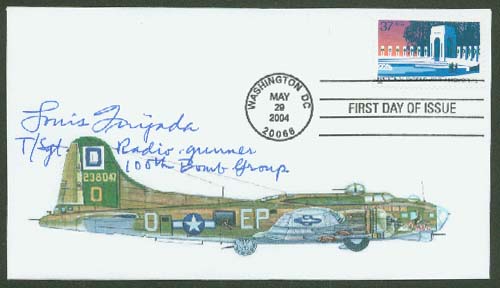 37
WASHINGTON DC
MAY
29
2004
20066
FIRST DAY OF ISSUE
Louis
T/Sgt Radio-gunner
100th Bomb Group
D
238047
O
O EP